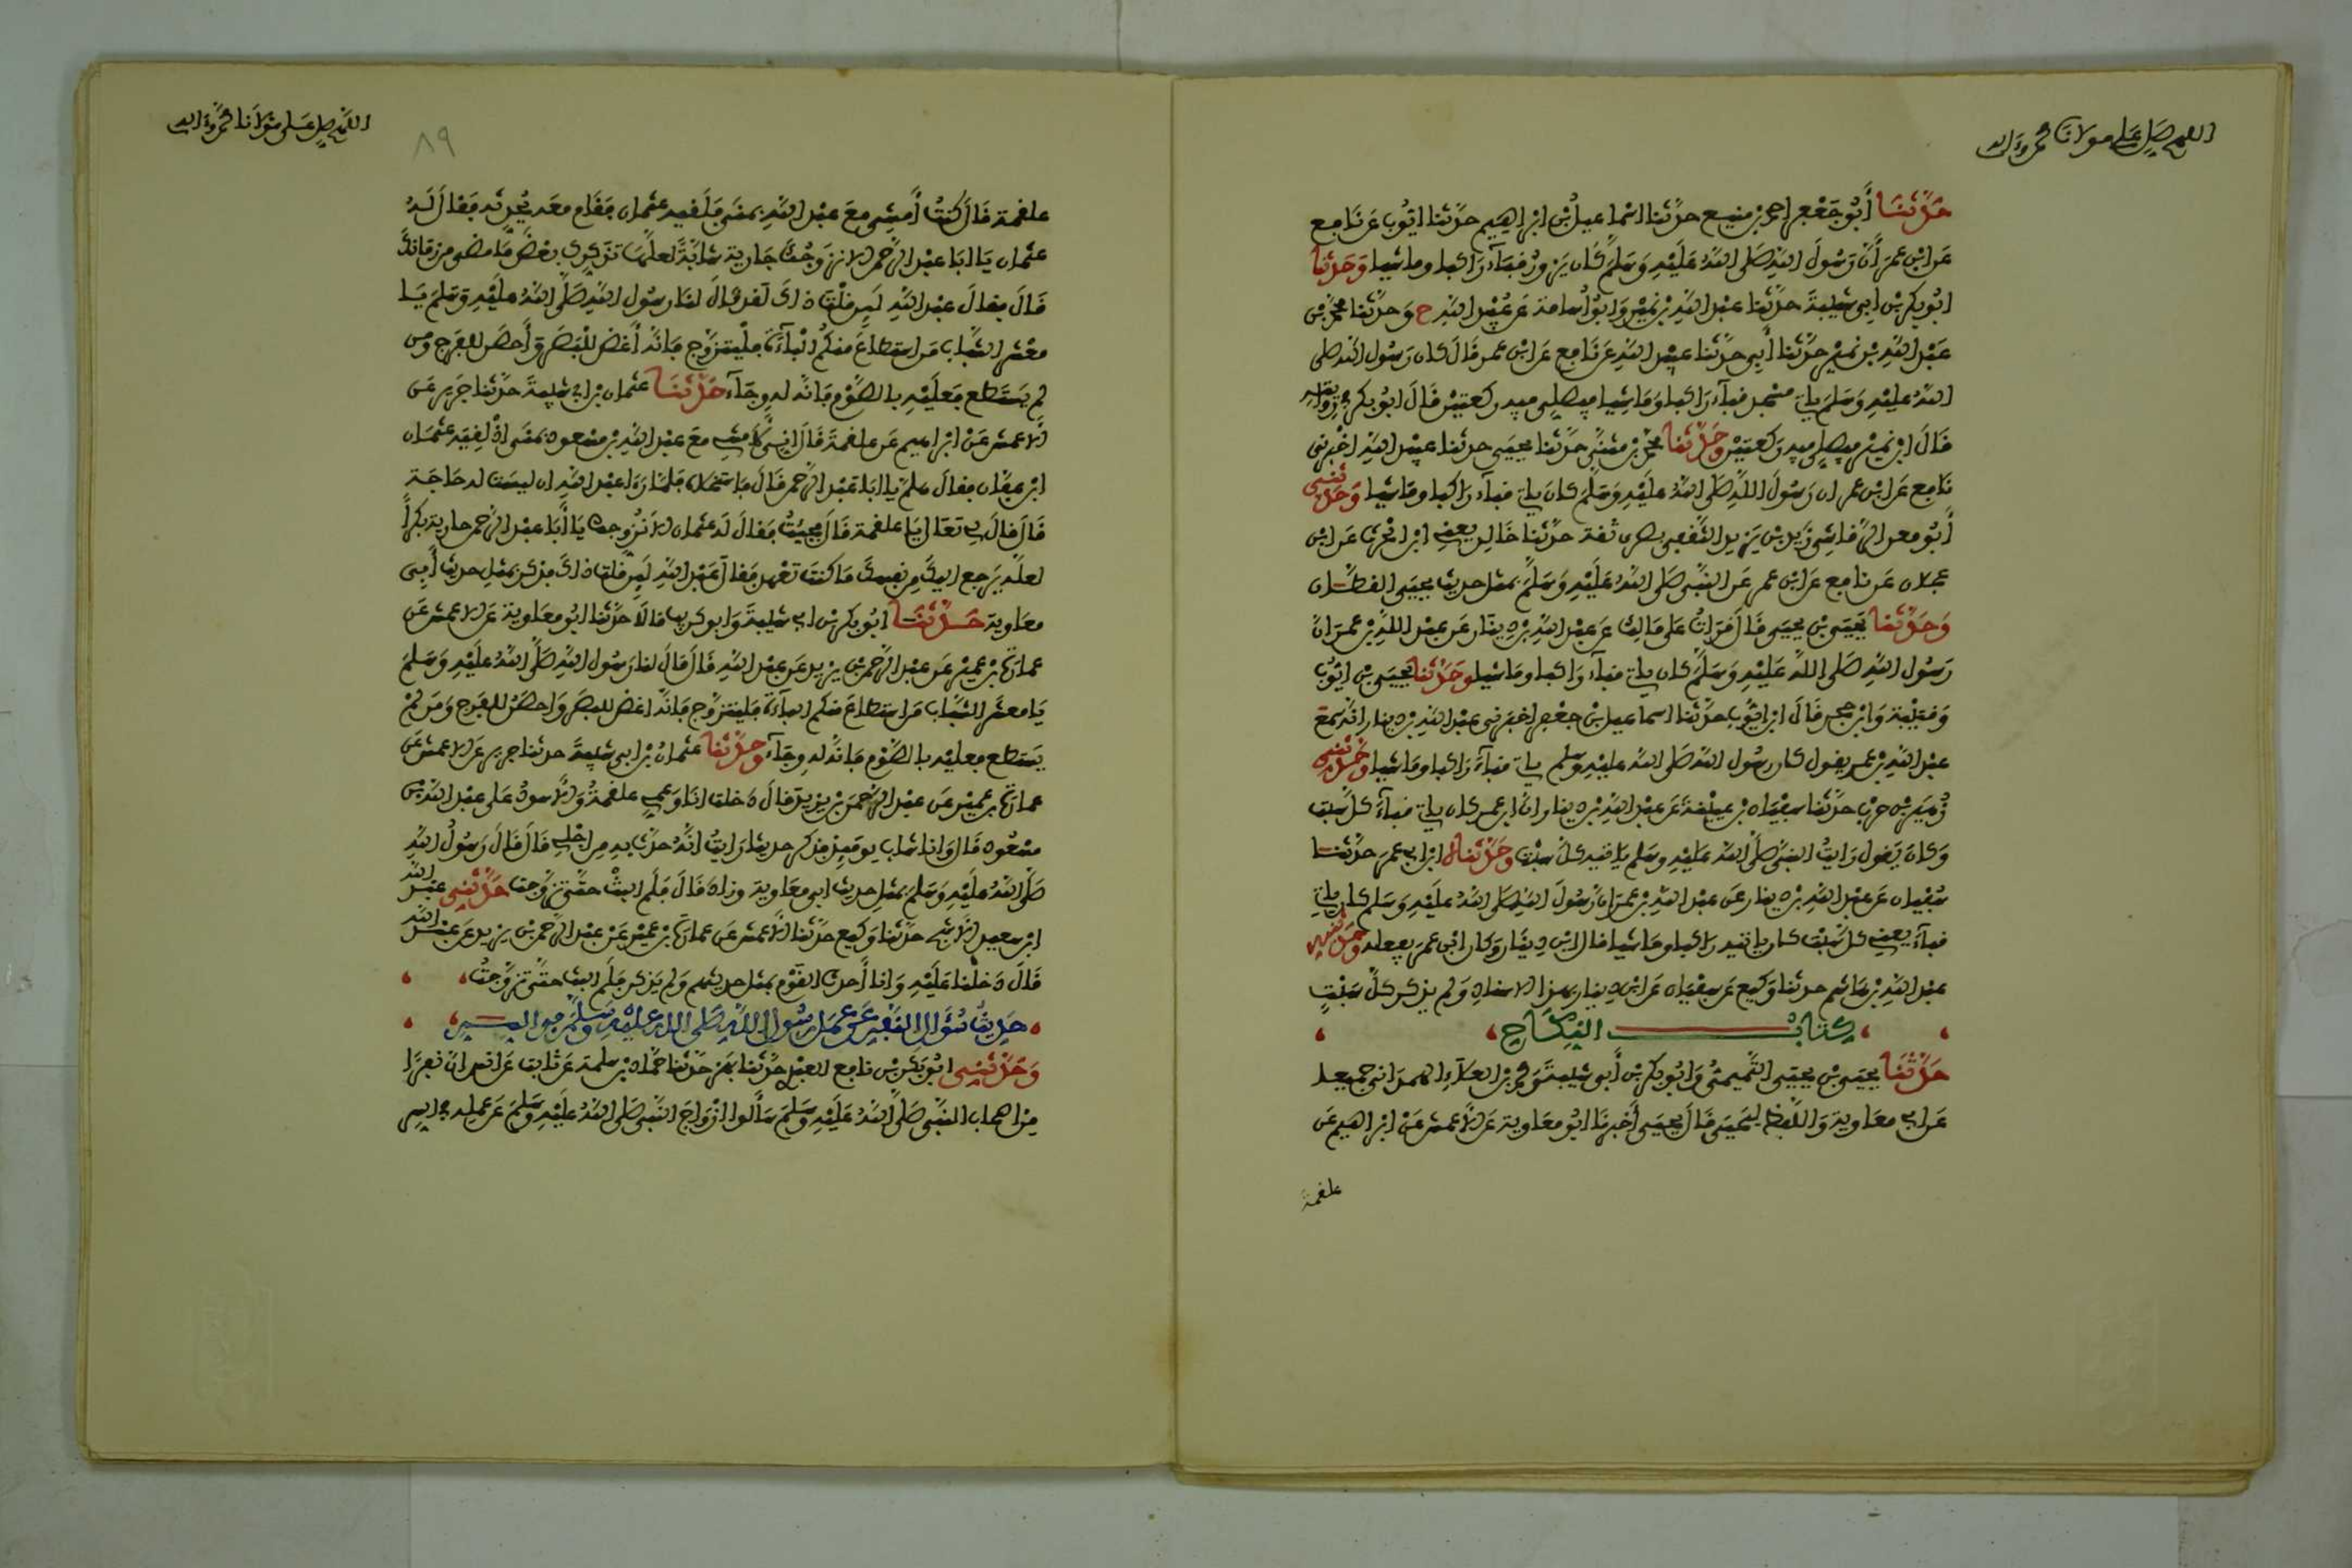 اللهم صل على مولانا محمد وءاله
حَدَّثَنَا أَبُو جَعْفَر احمد بن منيع حدَّثنا اسْماعيلُ بْن ابْراهِيم حدَّثنا ايّوب عَن نَافع
عَن ابْن عمرَ أنَّ رَسُولَ اللهِ صَلى اللهُ عَلَيْهِ وَسَلَّمَ كَان يَزورُ قباءَ رَاكبا وماشيا وَحَدَّثنا
ابُو بكر بْن ابى شيبةَ حدَّثنا عبْد اللهِ بْن نميْر وَابُو أُسامة عَن عُبيْد اللهِ ح وَحدَّثنا محمّد بْن
عَبْد اللهِ بْن نميْر حدَّثنا أَبى حدَّثنا عبيْد اللهِ عَن نَافع عَن ابْن عمر قَالَ كان رَسُول الله صَلى
اللهُ عليْهِ وَسَلمَ ياتى مسْجد قباءَ رَاكبا وَمَاشيا فيصلى فيه ركعتيْن قَالَ ابُو بكر فى روايته
قَالَ ابْن نميْر فيصلى فيه ركعتيْن وحَدَّثنا محمّد بْن مثنَّى حدَّثنا يحيَى حدثنا عبيْد الله اخْبرنى
نَافع عَن ابْن عمر ان رَسُولَ اللهِ صَلى اللهُ عليْهِ وَسَلمَ كَانَ ياتى قباءَ رَاكبا ومَاشيا وَحَدَّثنى
أَبُو معن الرَّقاشى زَيْد بْن يَزيد الثَّقفى بصرى ثقة حدَّثنا خَالِد يعنى ابْن الحٰرث عَن ابْن
عجلان عَن نافع عَن ابْن عمر عَن النَّبى صَلى اللهُ عَلَيْهِ وَسَلَّمَ بمثل حديث يحيَى القطّان
وَحَدَّثنا يَحيَى بْن يحيَى قَالَ قَرَاتُ علَى مَالِك عَن عبْد اللهِ بْن دينار عَن عبْد اللهِ بْن عمرَ انَّ
رَسُول اللهِ صَلى اللهُ عَليْهِ وَسَلمَ كان ياتى قباءَ رَاكبا ومَاشيا وحَدَّثنا يحيَى بْن ايّوبَ
وَقتيْبة وَابْن حجر قَالَ ابْن ايّوب حدَّثنا اسماعيل بْن جعْفر اخبَرنى عبْد اللهِ بْن دينار انّه سمعَ
عبْد اللهِ بْن عمر يقول كان رَسُول الله صَلى الله عليْهِ وسلم ياتى قباءَ رَاكبا ومَاشيا وحَدَّثنى
زُهيَر بْن حرْب حدَّثنا سفْيَان بْن عييْنةَ عَن عبْد اللهِ بْن دينار انَّ ابْن عمر كان ياتى قباءَ كلَّ سَبْت
وَكانَ يَقول رَايتُ النبىَّ صَلَّى اللهُ عَليْهِ وسَلم ياتيه كلَّ سبْت وحَدَّثناه ابْن ابى عمرَ حدَّثنا
سُفْيَان عَن عبْد اللهِ بْن دينار عَن عبْد اللهِ بْن عمرَ انّ رَسُولَ اللهِ صَلى اللهُ عليْهِ وَسَلم كان ياتى
قباءَ يعنى كلَّ سَبْت كان ياتيه رَاكبا ومَاشيا قال ابْن دينَار وَكان ابْن عمرَ يفعله وحَدَّثنيه
عبْد اللهِ بْن هَاشم حدثنا وَكيع عَن سفْيَان عَن ابْن دينار بهذا الاسنادِ وَلم يذكر كلَّ سَبْتٍ
كِتَابُ النِكَاح
حَدَّثنَا يحيَى بْن يحيَى التَّمِيمىُّ وَابُو بكر بْن أَبى شيْبَةَ ومحمد بْن العَلآءِ الهمدانى جميعا
عَن ابى معَاوية وَاللَّفظ ليحيَى قَالَ يحيَى أَخبرنَا ابُو معَاوية عَن الاعمش عَن ابْراهيم عَن
علقمة
اللهم صل على مولانا محمد وءاله
٨٩
علقمة قَالَ كنتُ أَمشى معَ عبْد اللهِ بمنًى فلَقيه عثمان فقَام معَه يُحدِّثه فقَالَ لَهُ
عثمان يَا ابَا عبْد الرَّحمن الا نزوّجُكَ جَارية شابّةً لعلّهَا تذكرك بَعْضَ مَا مضَى من زمَانك
قَالَ فقالَ عبْد اللهِ لَئن قلْتَ ذاكَ لَقد قَالَ لنا رسُول اللهِ صَلَّى اللهُ عليْهِ وسَلمَ يَا
معْشر الشَّبَاب مَن اسْتطاعَ منكُم الْبَآءَةَ فلْيتزوّج فَانّه أَغضّ للْبَصَر وَأَحصَن للفَرج وَمن
لم يَسْتَطع فعَلَيْهِ بالصَّوْم فَانّه له وِجَآء حَدَّثنَا عثمان بْن ابى شيْبةَ حدَّثنا جَرير عَن
الاعمش عَنْ ابْراهيم عَن علقمةَ قَالَ انّى لأَمشى معَ عبْد اللهِ بْن مسْعود بمنًى اذْ لقيَه عثمَان
ابْن عفّان فقالَ هلمّ يا ابَا عَبْد الرَّحمن قَالَ فاستخلاه فلمّا رَءَا عبْد اللهِ ان ليسَت له حَاجَة
قَالَ قالَ لى تعَال يَا علقمة قَالَ فجئتُ فقالَ لَه عثمان الا نُزوجك يَا أَبَا عبْد الرَّحمن جارية بكرًا
لعلّه يَرجع اليكَ مِن نفسكَ مَا كنتَ تعْهد فقالَ عَبْد اللهِ لَئن قلتَ ذاكَ فذكر بمثلِ حديث أَبى
معَاوية حَدَّثنَا ابُو بكر بْن ابى شيْبةَ وَابو كريب قالَا حدَّثنا ابُو معَاوية عَن الاعمش عَن
عمارَة بْن عميْر عَن عبْد الرَّحمن بْن يزيد عَن عبْد اللهِ قَالَ قَالَ لنا رَسُول اللهِ صَلَّى اللهُ عَلَيْهِ وَسَلمَ
يَا معشَر الشَّبَاب مَن استطاعَ منكم البآءَة فليتزوّج فَانّه اغضّ للبصَر وَاحصَنُ للفَرج وَمَن لمْ
يَستطع فعليْه بالصَّوْم فَانّه له وِجَآء وحَدَّثنا عثمانُ بْن ابى شيبةَ حدثنا جرير عَن الاعمش عَن
عمارَة بْن عميْر عَن عبْد الرَّحمَن بْن يزيدَ قالَ دَخلت انَا وَعمى علقمةُ وَالاسودُ علَى عبْد اللهِ بْن
مسْعُود قَال وَانا شاب يومَئذٍ فذكر حديثا رَايتُ انّه حدّث بهِ مِن اجْلى قَالَ قَالَ رَسُولُ اللهِ
صَلَّى اللهُ عليْهِ وسَلمَ بمثلِ حديث ابى معَاوية وزاد قَالَ فلَم البثْ حتَّى تزوّجت حَدَّثنى عبْد الله
ابْن سعيد الاشَجّ حدَّثنا وَكيع حدَّثنا الاعمش عَن عمارَة بْن عميْر عَن عبْد الرَّحمن بْن يزيد عَن عبْد الله
قَالَ دَخلْنا عَلَيْهِ وَانا أَحدث القَوْم بمثل حديثهم وَلم يَذكر فلَم البث حتَّى تزوَّجتُ
حَدِيث سُؤَالِ النَّفَرِ عَن عمَل رَسُولِ اللهِ صَلى اللهُ عليْهِ وَسلَّمَ فى السر
وَحَدَّثنِى ابُو بَكر بْن نافع العبْدى حدَّثنا بَهز حَدَّثنا حمّاد بْن سلمة عَن ثابت عَن انس انّ نفرًا
مِن اصحاب النَّبى صَلَّى اللهُ عَلَيْهِ وَسَلمَ سَأَلوا ازْوَاجَ النَّبى صَلى اللهُ عليْهِ وسَلمَ عَن عمله فى السر